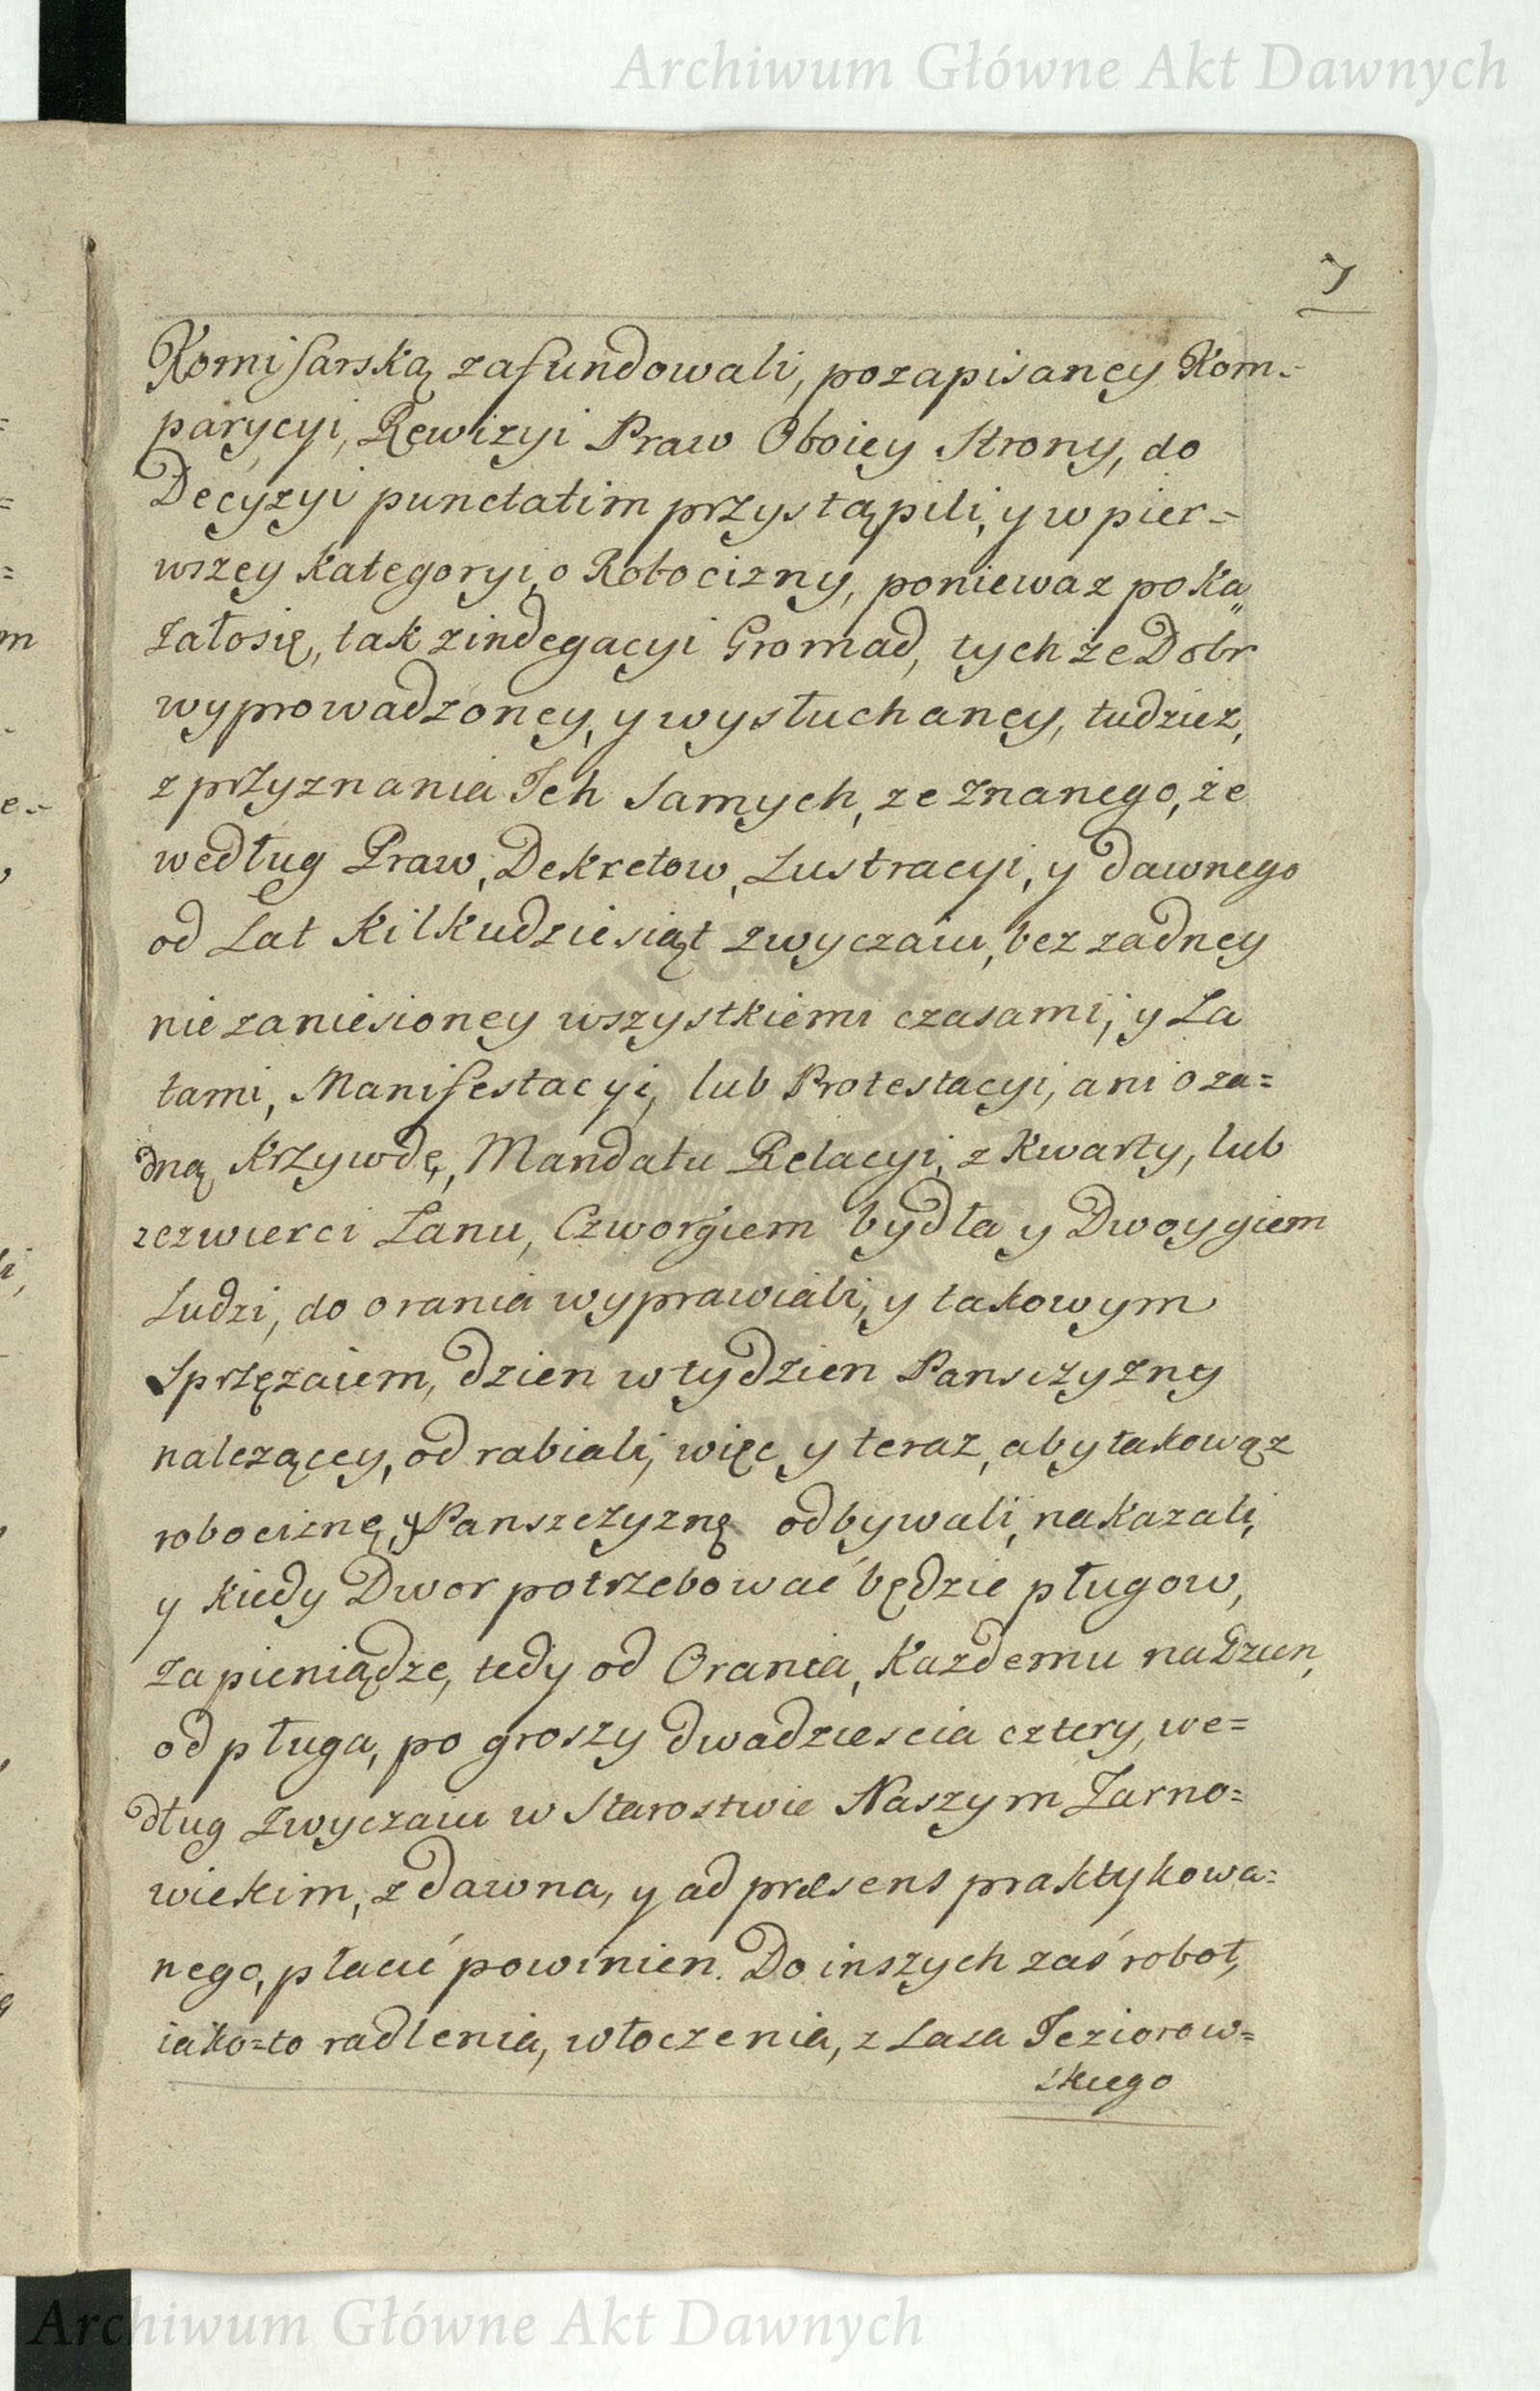 Archiwum Główne Akt Dawnych
7
Komisarską zafundowali, po zapisaney Kom=
parycyi, Rewizyi Praw Oboiey Strony, do
Decyzyi punctatim przystąpili, y w pier=
wszey Kategoryi, o Robocizny, poniewaz poka„
załosię, tak z indegacyi Gromad, tychże Dobr
wyprowadzoney, y wysłuchaney, tudziez,
z przyznania Ich Samych, zeznanego, że
według Praw, Dekretow, Lustracyi, y dawnego
od Lat Kilkudziesiąt zwyczaiu, bez zadney
nie zaniesioney wszystkiemi czasami, y La
tami, Manifestacyi, lub Protestacyi, ani o za=
dną Krzywdę, Mandatu Relacyi, z Kwarty, lub
zczwierci Lanu, Czworgiem bydła y Dwoygiem
Ludzi, do orania wyprawiali, y takowym
Sprzęzaiem, dzien w tydzien Pansczyzny
nalezącey, odrabiali, więc y teraz, aby takowąz
robociznę, y Panszczyznę odbywali, nakazali,
y kiedy Dwor potrzebować będzie pługow,
za pieniądze, tedy od Orania, Kazdemu na Dzien,
od pługa, po groszy dwadziescia cztery, we=
dług zwyczaiu w Starostwie Naszym Zarno=
wieckim, z dawna, y ad præsens praktykowa=
nego, płacić powinien. Do inszych zaś robot,
iako=to radlenia, włoczenia, z Lasa Jeziorow=
skiego
Archiwum Główne Akt Dawnych